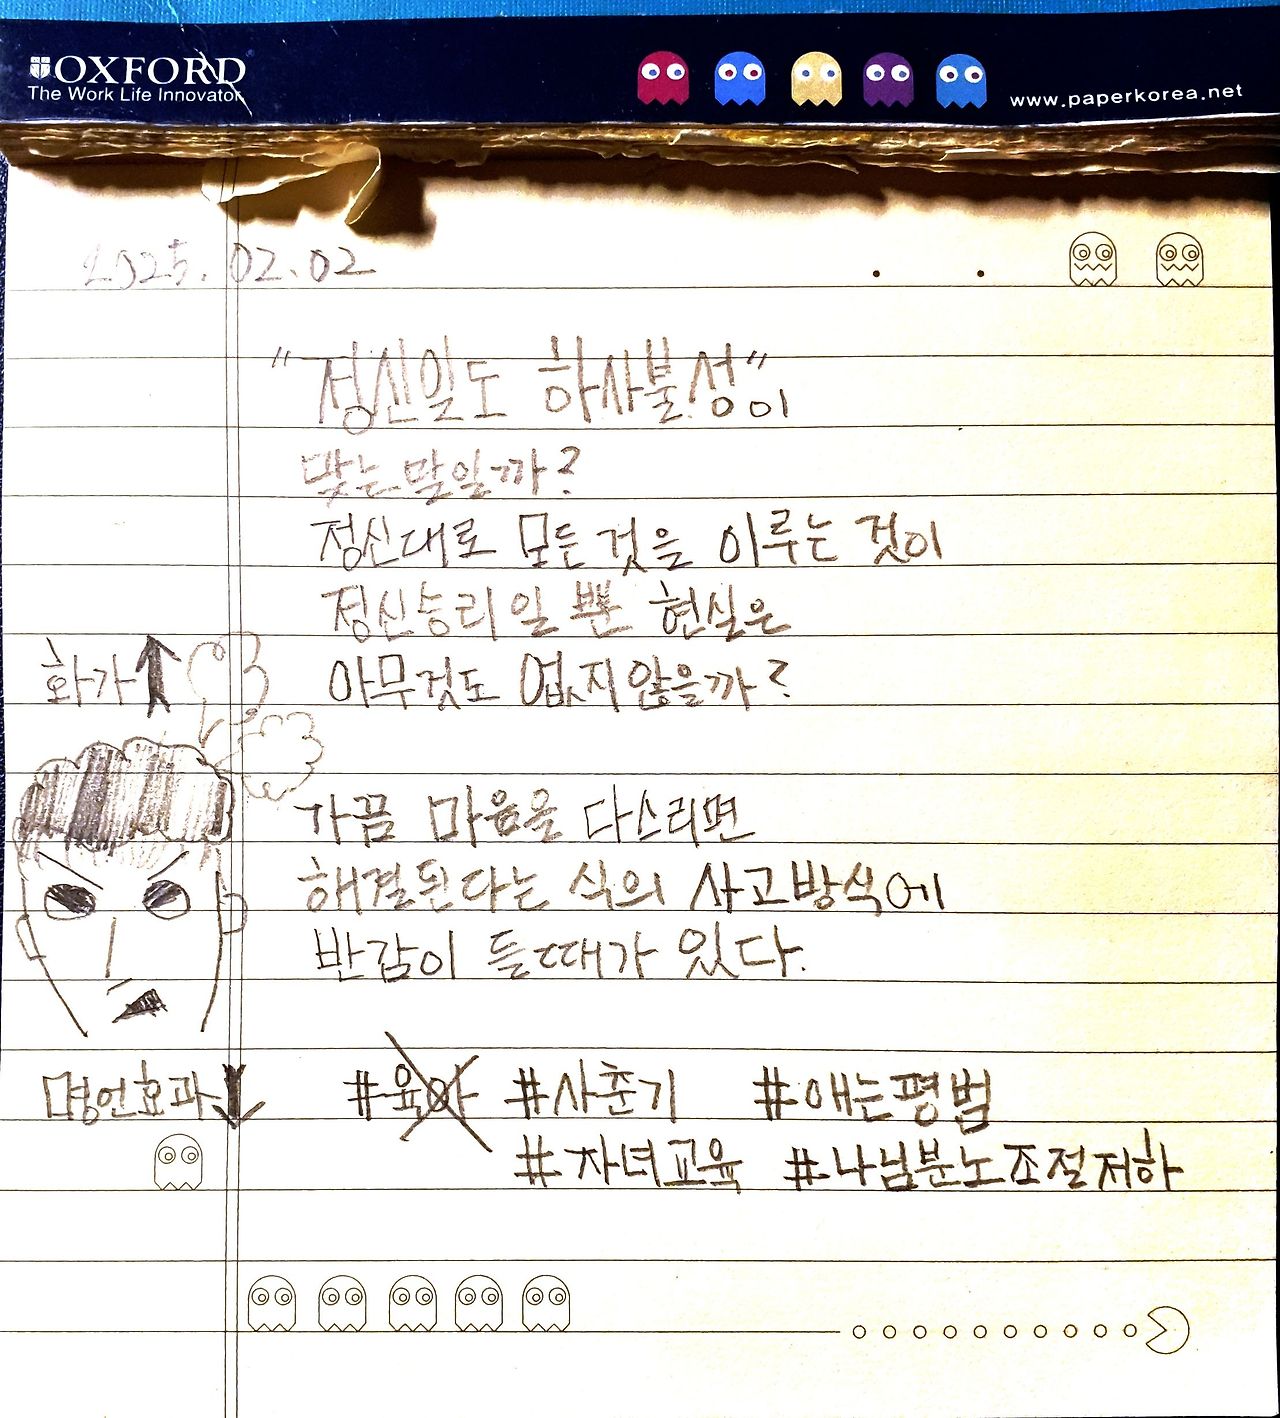 OXFORD
The Work Life Innovator
www.paperkorea.net
2025.02.02
"정신일도 하사불성"이
맞는말일까?
정신대로 모든것을 이루는 것이
정신승리일 뿐 현실은
아무것도 없지않을까?
화가
가끔 마음을 다스리면
해결된다는 식의 사고방식에
반감이 들때가 있다.
명언효과
#육아 #사춘기 #애는평범
#자녀교육 #나님분노조절저하